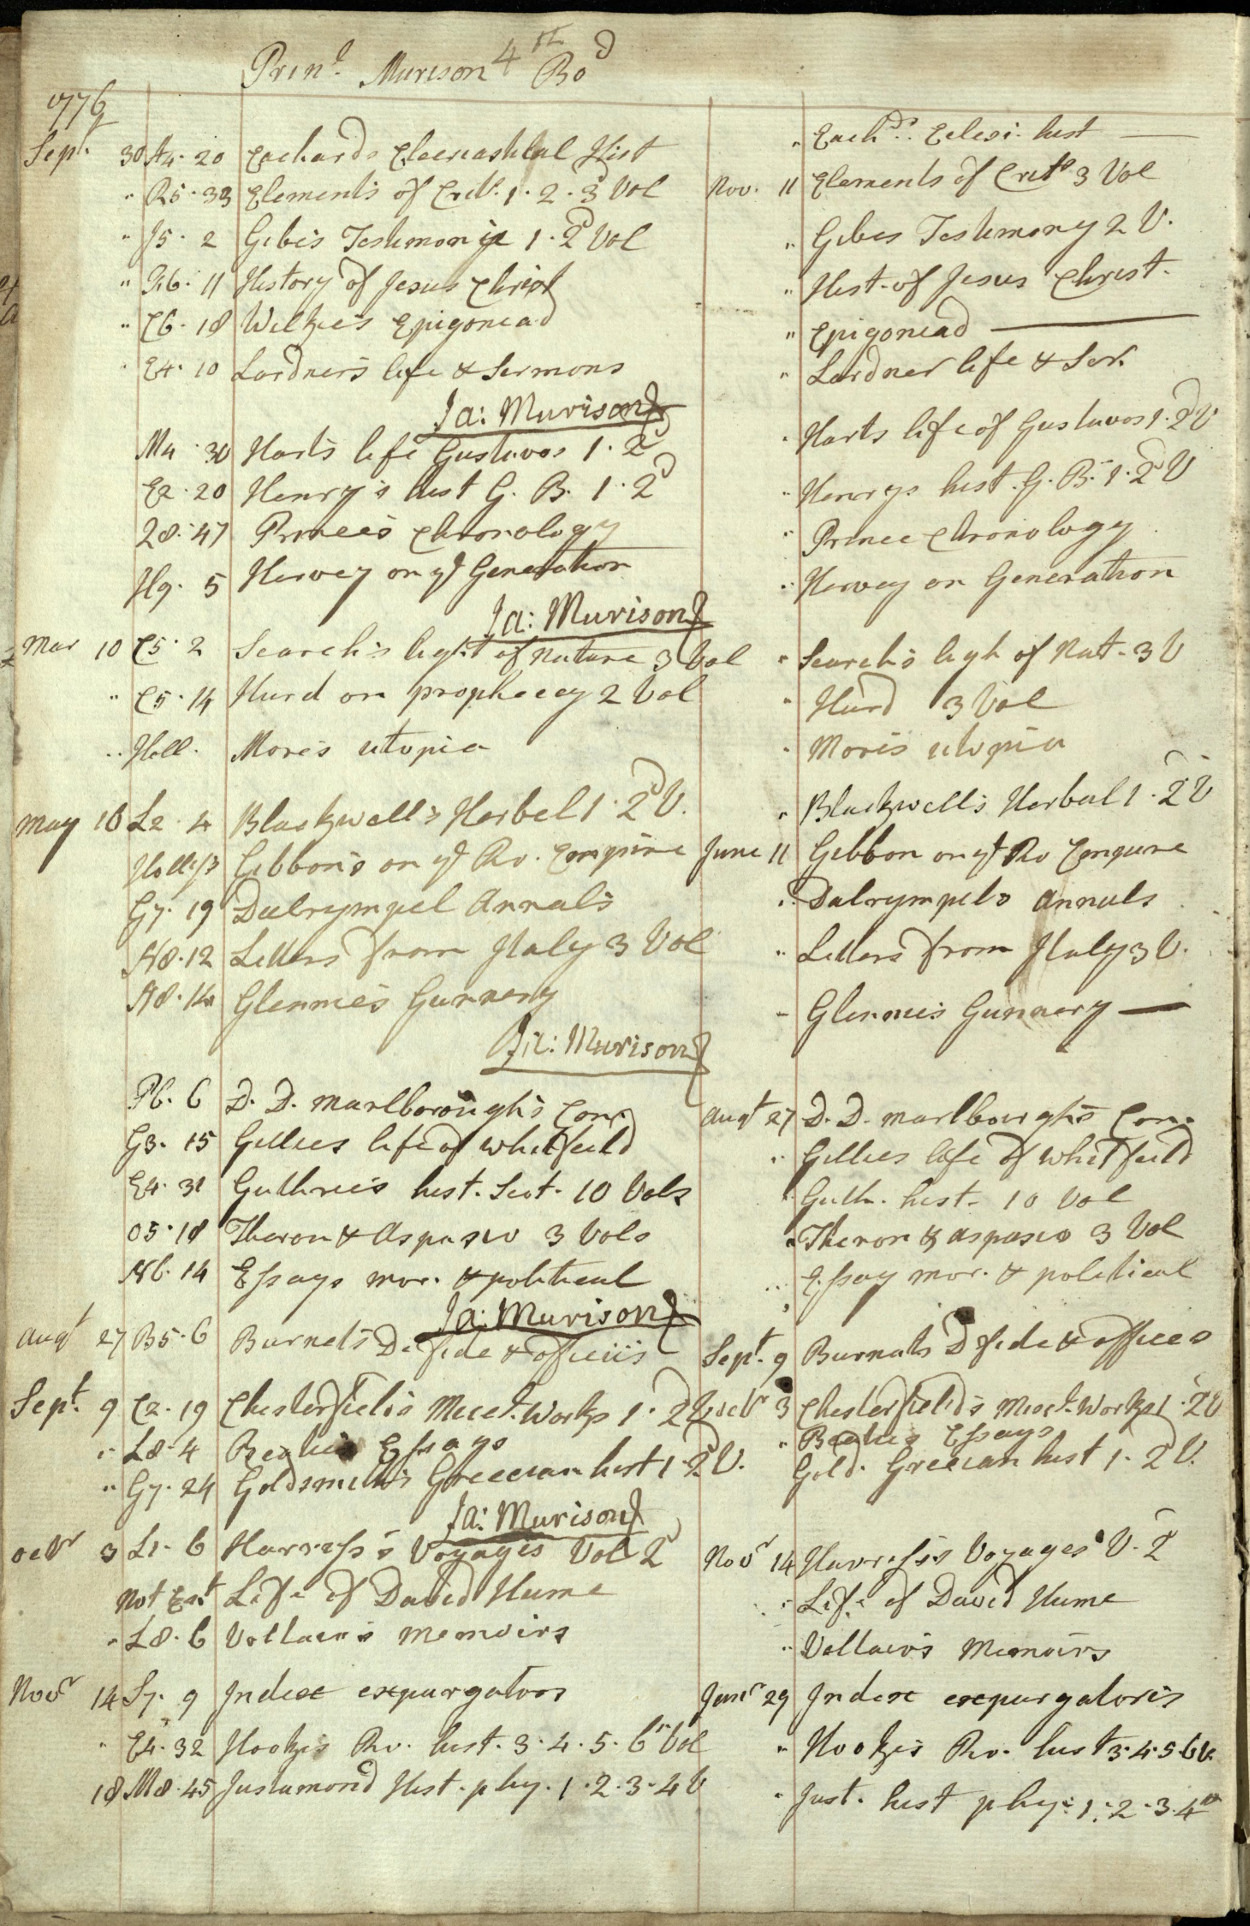 Prin.l Murison 4th Bo.d
1776
Sept. 30 A4. 20 Eachards Eclesiastical Hist " Each.ds Eclesi. hist
" R5. 33 Elements of Crit. 1. 2. 3d Vol Nov. 11 Elements of Crit. 3 Vol
" J5. 2 Gibes Testimonie 1. 2d Vol " Gibes Testimony 2 V.
" 11 History of Jesus Christ " Hist. of Jesus Christ.
" C6. 18 Wilkie's Epigoniad " Epigoniad
" E4. 10 Lardner's life & Sermons " Lardner life & Ser.
Ja: Murison
30 Hart's life Gustavos 1. 2d " Harts life of Gustavos 1. 2d V
E2. 20 Henry's hist G. B. 1. 2d " Henrys hist. G. B. 1. 2d V
28. 47 Prince's Chronology " Prince Chronology
H9. 5 Hervey on ye Generation " Hervey on Generation
Ja: Murison
Mar 10 C5. 2 Search's light of Nature 3 Vol " Search's ligh of Nat. 3 V
" C5. 14 Hurd on prophecey 2 Vol " Hurd 3 Vol
" Holl. More's utopia " Moris utopia
May 16 L2. 4 Blackwell's Herbel 1. 2d V. " Blackwell's Herbal 1. 2d V
Gibbon's on ye Ro. Empire June 11 Gibbon on ye Ro Empire
G7. 19 Dalrympel Annals " Dalrympels Annals
A8. 12 Letters from Italy 3 Vol " Letters from Italy 3 V.
A8. 14 Glennie's Gunnery " Glennies Gunnery
Ja: Murison
P6. 6 D. D. Marlborough's Con. Augt 27 D. D. Marlbourghs Con.
G3. 15 Gillies life of Whitfield " Gillies life of Whitfield
E4. 31 Guthrie's hist. Scot. 10 Vols " Guth. hist. 10 Vol
O5. 18 Theron & Aspasio 3 Vols " Theron & Aspasio 3 Vol
14 Essays mor. & political " Essay mor. & political
Ja: Murison
Augt 27 B5. 6 Burnet's De fide & officiis Sept. 9 Burnats D fide & offices
Sept. 9 C2. 19 Chesterfield's Mict. Works 1. 2d V Octr 3 Chesterfield's Misct. Works 1. 2 V
" L8. 4 Beatie's Essays " Beatie's Essays
" G7. 24 Goldsmith's Greecian hist 1. 2d V. Gold. Greecian hist 1. 2d V.
Ja: Murison
Octr 3 L1. 6 Harress's Voyages Vol 2d Novr 14 Harress's Voyages V. 2d
Not Ent Life of David Hume " Life of David Hume
" L8. 6 Voltair's Memoirs " Voltair's Memoirs
Novr 14 S7. 9 Index expurgatoos Janr 29 Index expurgatoris
" E4. 32 Hooke's Ro. hist. 3. 4. 5. 6 Vol " Hooke's Ro. hist 3. 4. 5. 6 V.
18 M8. 45 Justamond Hist. phy. 1. 2. 3. 4 V " Just. hist phy. 1. 2. 3. 4